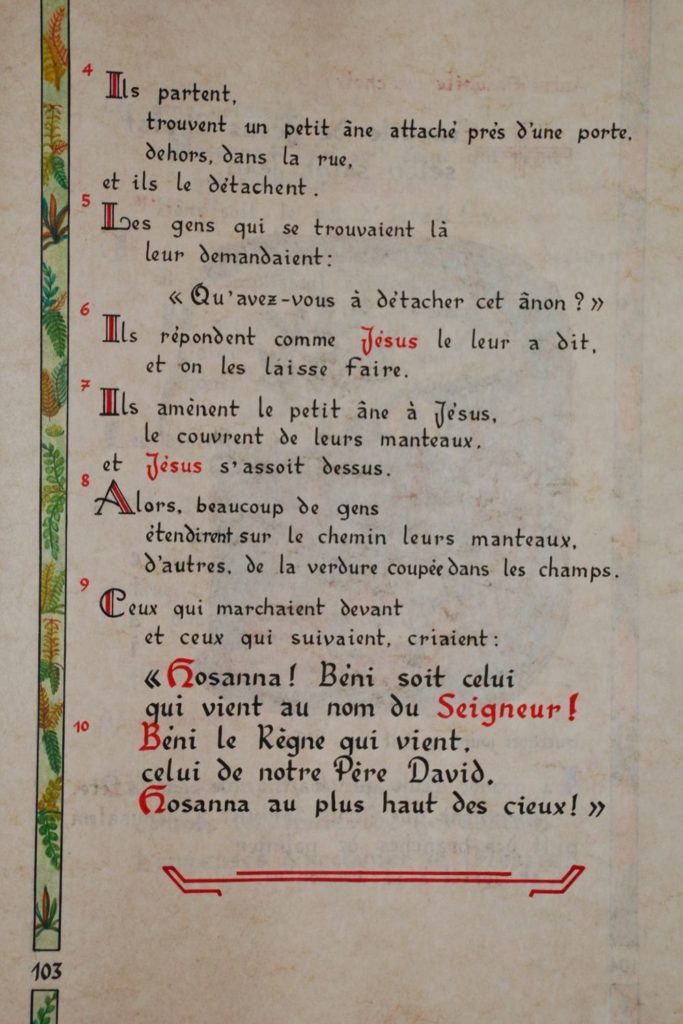 4
Ils partent,
trouvent un petit âne attaché près d'une porte.
dehors, dans la rue,
et ils le détachent.
5
Les gens qui se trouvaient là
leur demandaient:
« Qu'avez-vous à détacher cet ânon ? »
6
Ils répondent comme Jésus le leur a dit,
et on les laisse faire.
7
Ils amènent le petit âne à Jésus,
le couvrent de leurs manteaux.
et Jésus s'assoit dessus.
8
Alors, beaucoup de gens
étendirent sur le chemin leurs manteaux,
d'autres, de la verdure coupée dans les champs.
9
Ceux qui marchaient devant
et ceux qui suivaient, criaient:
« Hosanna! Béni soit celui
qui vient au nom du Seigneur!
10
Béni le Règne qui vient,
celui de notre Père David.
Hosanna au plus haut des cieux! »
103